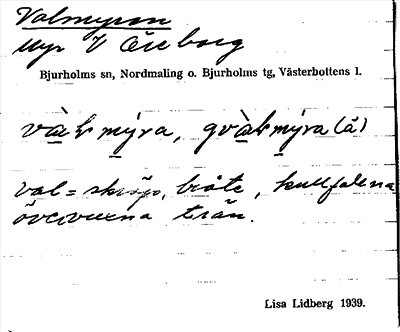 Valmyran
Myr V Öreborg
Bjurholms sn, Nordmaling o. Bjurholms tg, Västerbottens l.
mýra, mýra (å)
val = skräp, bråte, kullfallna
övervuxna trän.
Lisa Lidberg 1939.